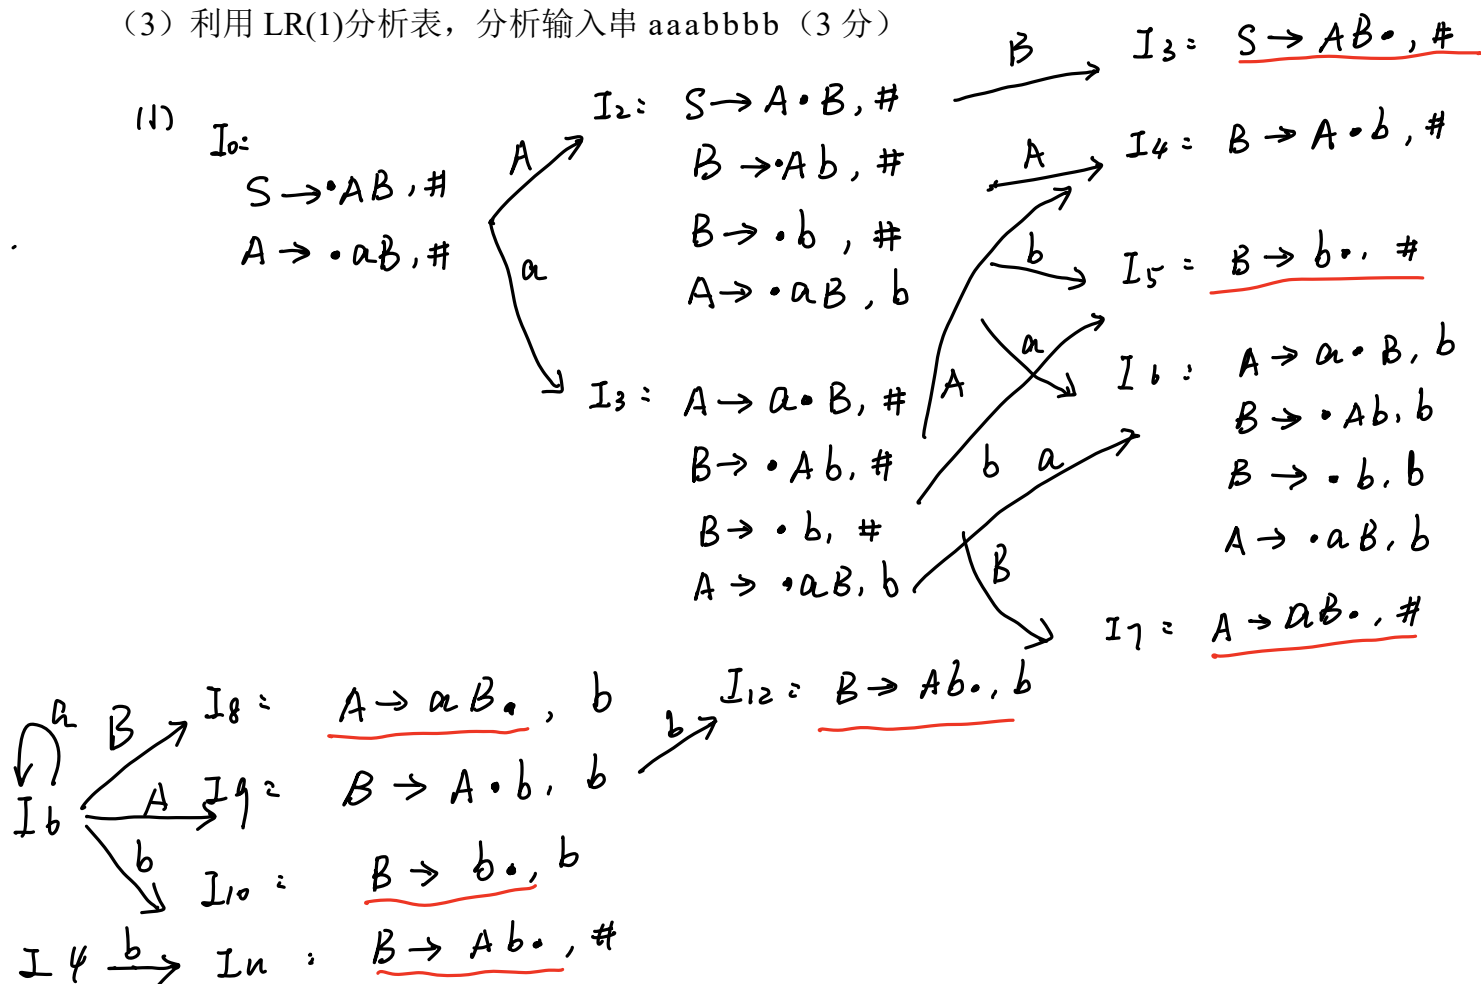 （3）利用 LR(1)分析表，分析输入串 aaabbbb（3 分）
(1)
I0:
S → •AB, #
A → •aB, #
A
a
I2: S → A•B, #
B → •Ab, #
B → •b, #
A → •aB, b
I3: A → a•B, #
B → •Ab, #
B → •b, #
A → •aB, b
B
A
b
a
A
b
a
B
I3: S → AB•, #
I4: B → A•b, #
I5: B → b•, #
I6: A → a•B, b
B → •Ab, b
B → •b, b
A → •aB, b
I7: A → aB•, #
I6
a
B
A
b
I8: A → aB•, b
I9: B → A•b, b
b
I12: B → Ab•, b
I10: B → b•, b
I4 b → I11: B → Ab•, #